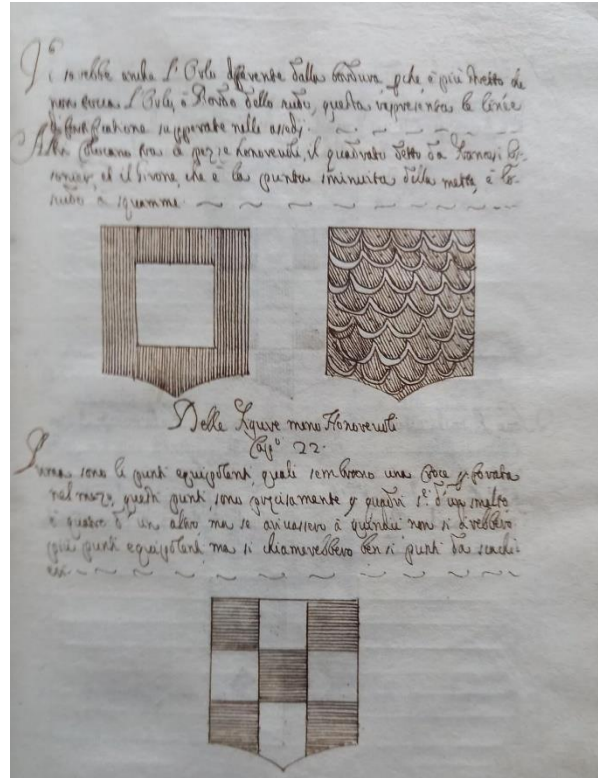 vi sarebbe anche l'Orlo differente dalla bordura, che è più stretto che
non tocca l'Orlo, ò Bordo dello scudo, questa rappresenta le linee
di fortificatione superate nelli assedij.
Altri Colocano tra le pezze honorevoli, il quadrato detto da Francesi
et il Girone, che è la punta sminuita della metta, è lo
scudo a squamme
Delle figure meno Honorevoli
Cap.º 22.
Prima sono li punti equipolenti, quali sembrano una Croce forata
nel mezo, questi punti, sono precisamente quadri d'un smalto
è quatro d'un altro ma se arivassero à quindici non si direbbero
più punti equipolenti ma si chiamerebbero ben si punti da scachi